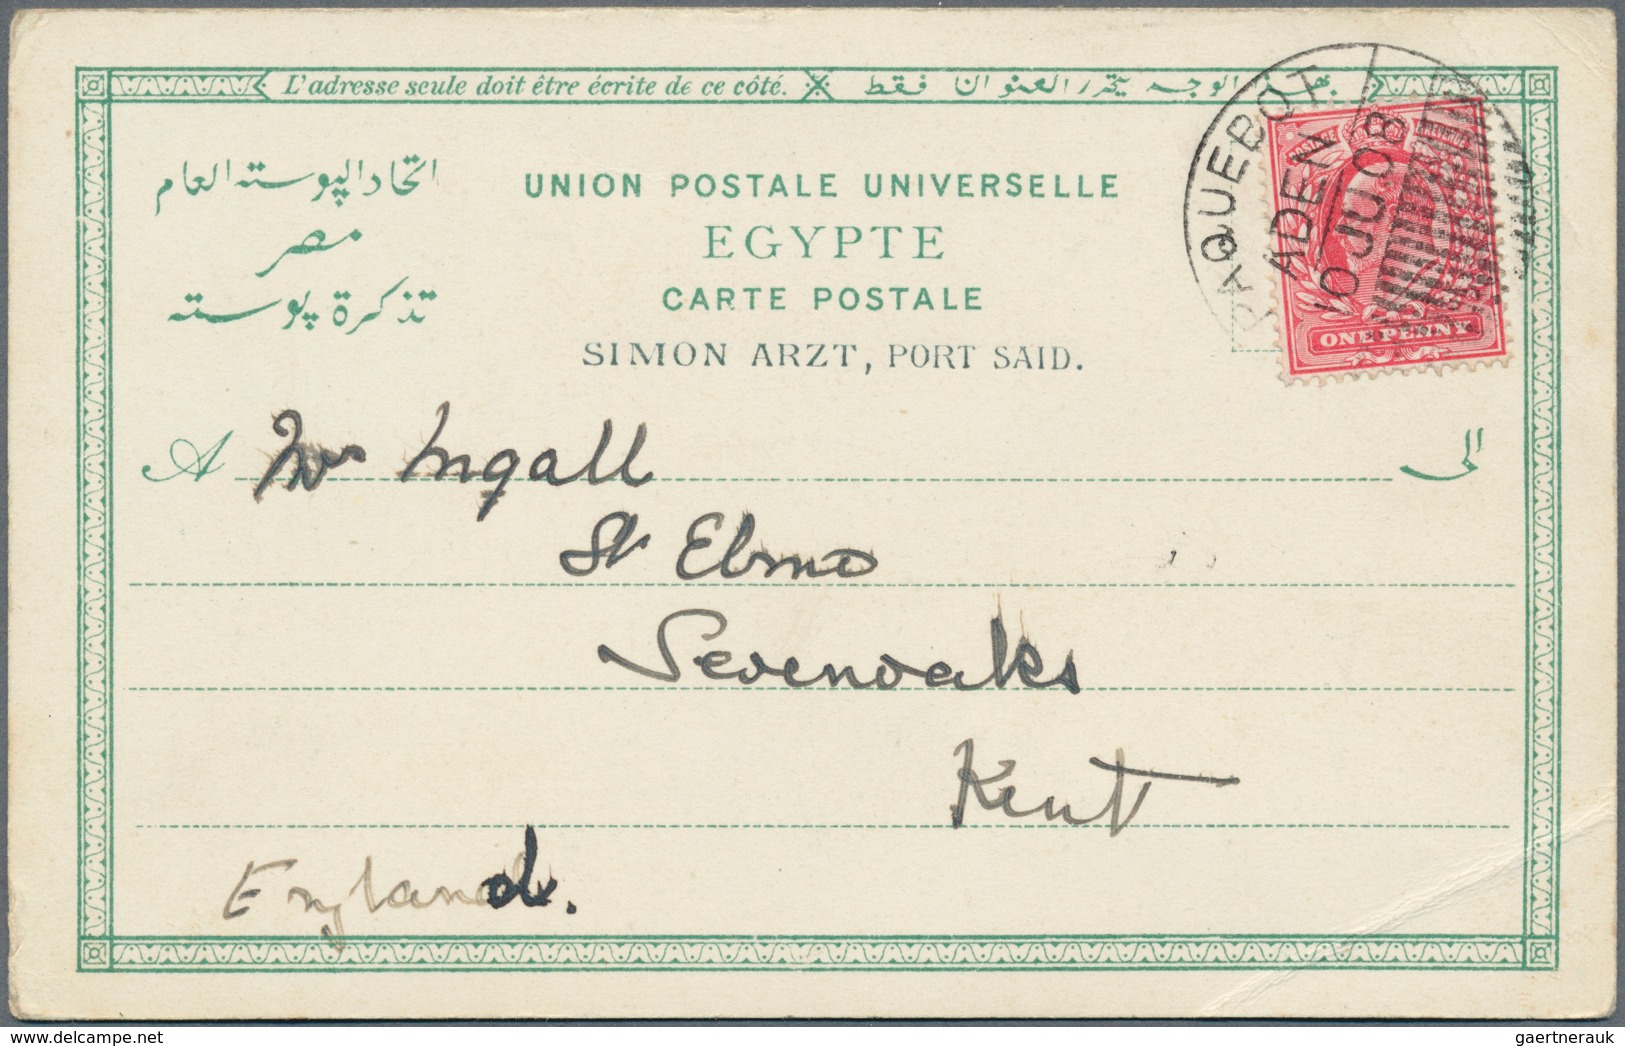 L'adresse seule doit être écrite de ce côté. بهذا الوجه يحرر العنوان فقط
اتحاد البوسته العام
UNION POSTALE UNIVERSELLE
مصر
EGYPTE
تذكرة بوسته
CARTE POSTALE
SIMON ARZT, PORT SAID.
PAQUEBOT
ADEN
10 JU 08
ONE PENNY
A Mr Ingall الى
St Elmo
Sevenoaks
Kent
England.
www.delcampe.net
gaertnerauk